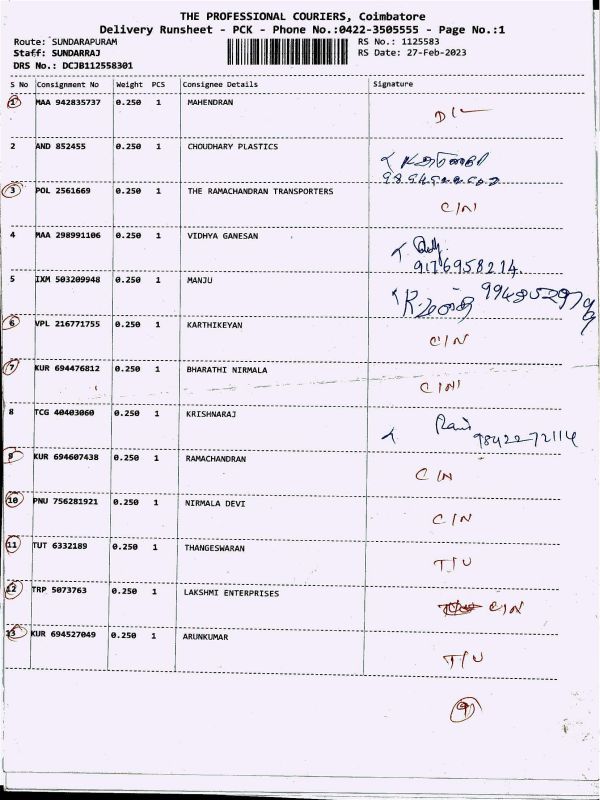 THE PROFESSIONAL COURIERS, Coimbatore
Delivery Runsheet - PCK - Phone No.:0422-3505555 - Page No.:1
Route: SUNDARAPURAM RS No.: 1125583
Staff: SUNDARRAJ RS Date: 27-Feb-2023
DRS No.: DCJB112558301
S No Consignment No Weight PCS Consignee Details Signature
1 MAA 942835737 0.250 1 MAHENDRAN D/L
2 AND 852455 0.250 1 CHOUDHARY PLASTICS
3 POL 2561669 0.250 1 THE RAMACHANDRAN TRANSPORTERS C/N
4 MAA 298991106 0.250 1 VIDHYA GANESAN
9176958214.
5 IXM 503209948 0.250 1 MANJU
6 VPL 216771755 0.250 1 KARTHIKEYAN C/N
7 KUR 694476812 0.250 1 BHARATHI NIRMALA C/N
8 TCG 40403060 0.250 1 KRISHNARAJ
98422-72114
9 KUR 694607438 0.250 1 RAMACHANDRAN C/N
10 PNU 756281921 0.250 1 NIRMALA DEVI C/N
11 TUT 6332189 0.250 1 THANGESWARAN T/U
12 TRP 5073763 0.250 1 LAKSHMI ENTERPRISES C/N
13 KUR 694527049 0.250 1 ARUNKUMAR T/U
9